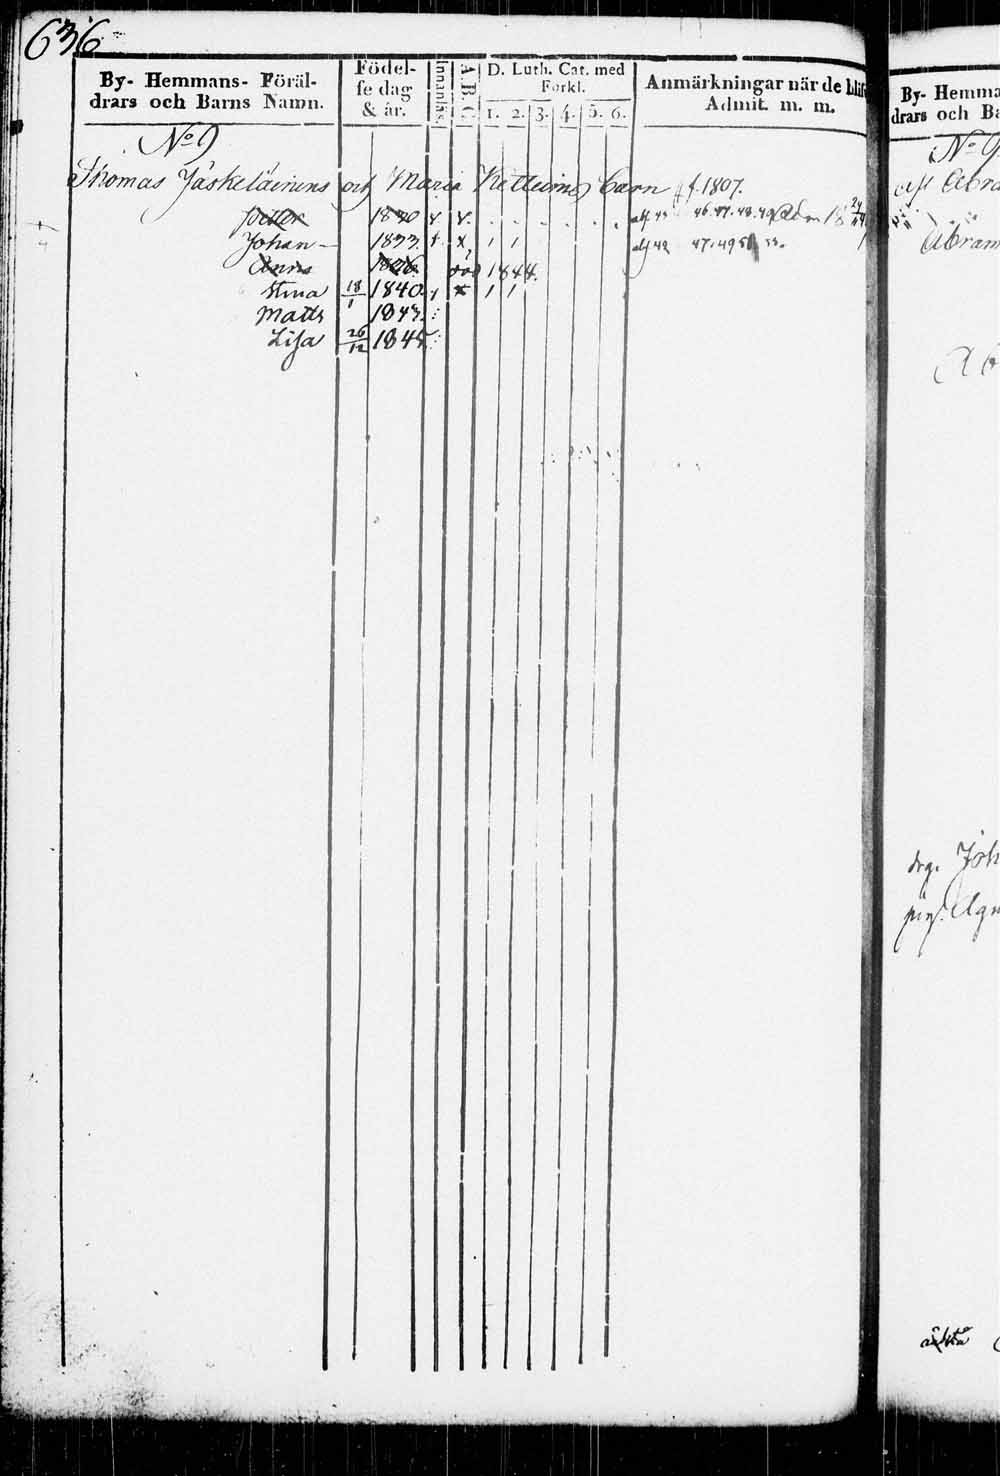 636
By- Hemmans- Föräl-
drars och Barns Namn.
Födel-
se dag
& år.
Innanläs.
A.B.C.
D. Luth. Cat. med
Förkl.
1. 2. 3. 4. 5. 6.
Anmärkningar när de
Admit. m. m.
No 9
Thomas Jäskeläinens och Maria barn f. 1807.
Petter 1830 46.47.48.49
Johan 1833 x 1 1 47.49
Anna 1836 död 1844.
Stina 18/1 1840 x 1 1
Matts 1843
Lisa 26/12 1845
By- Hemma
drars och Ba
No 9
Abra
Abram
Ab
drg. Joh
pig. Agn